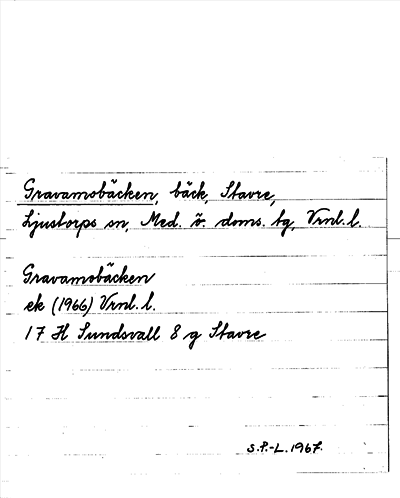 Gravamsbäcken, bäck, Stavre,
Ljustorps sn, Med. ö. doms. tg, Vrnl. l.
Gravamsbäcken
ek (1966) Vrnl. l.
17 H Sundsvall 8 g Stavre
S.P.-L. 1967.